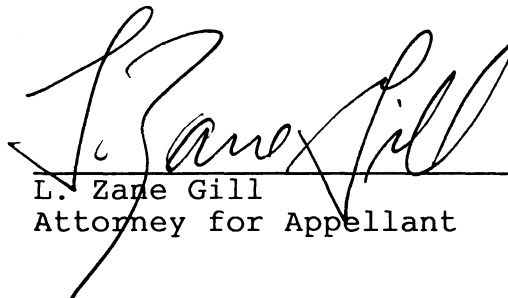 L. Zane Gill
L. Zane Gill
Attorney for Appellant